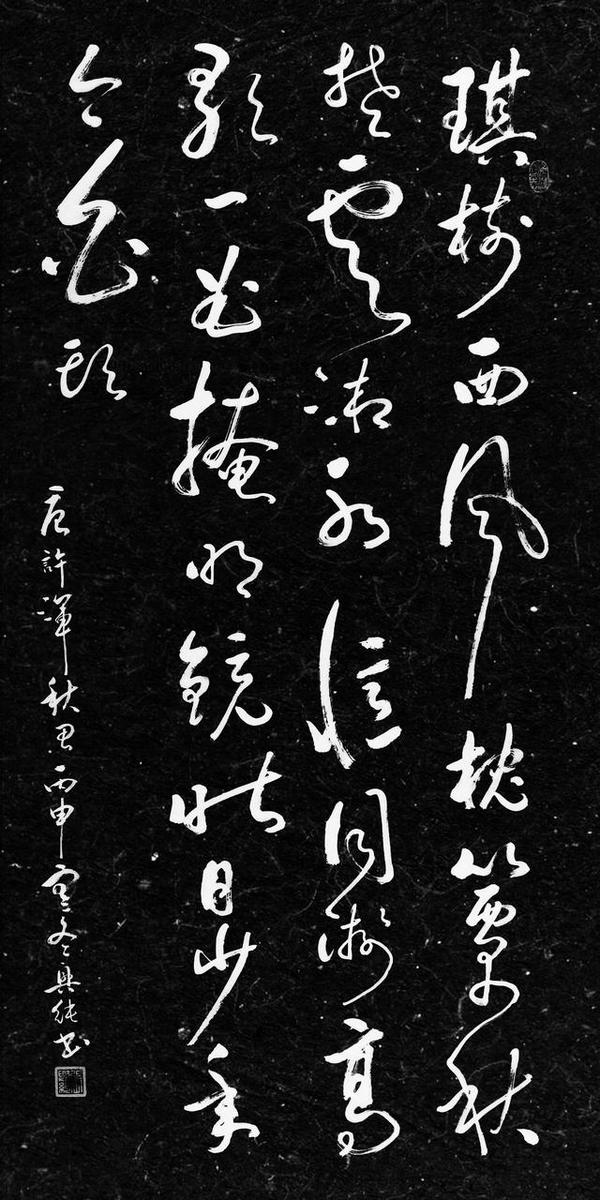 琪樹西風枕簟秋
楚雲湘水憶同遊高
歌一曲掩明鏡昨日少年
今白頭
唐許渾秋思丙申寒冬興純書